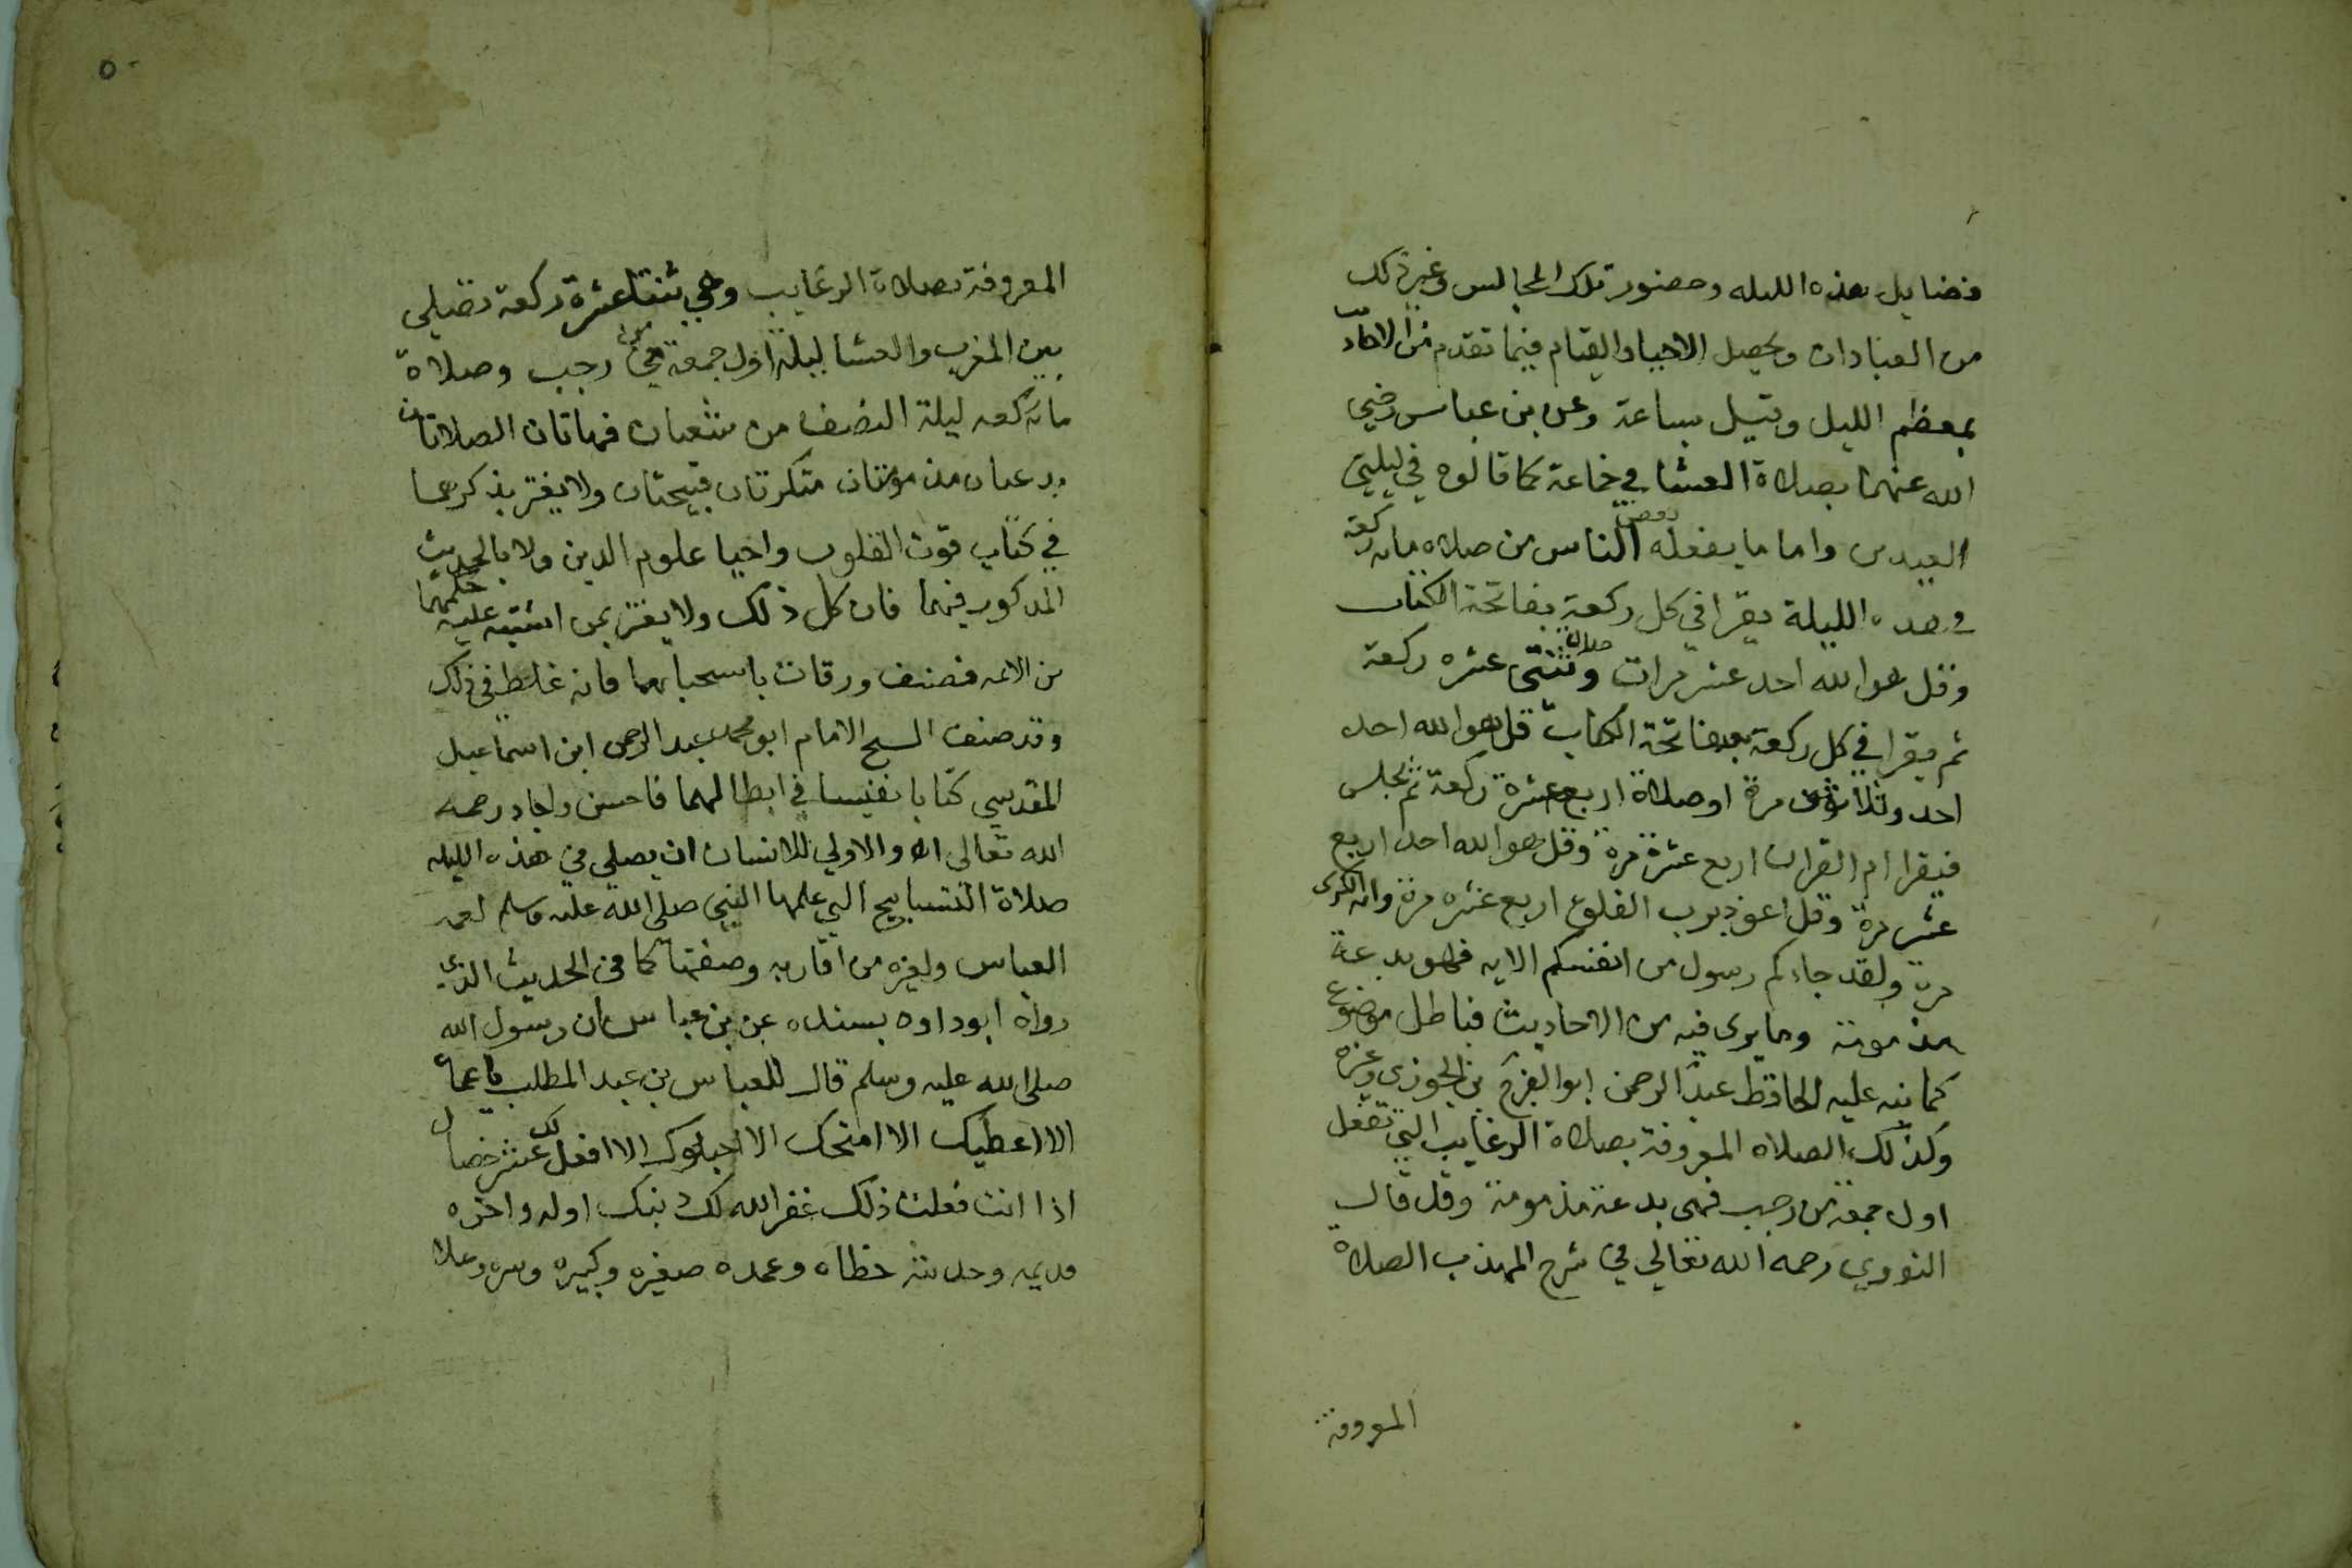 فضايل هذه الليله وحضور تلك المجالس وغير ذلك
من العبادات ويحصل الاحيا والقيام فيما تقدم من
بمعظم الليل وقيل بساعة وعن بن عباس رضي
الله عنهما بصلاة العشا في جماعة كما قالوه في ليلتي
العيدين واما ما يفعله بعض الناس من صلاه مايه ركعة
في هذه الليلة يقرا في كل ركعة بفاتحة الكتاب
وقل هو الله احد عشر مرات وصلاة ثنتي عشره ركعة
ثم يقرا في كل ركعة بعد فاتحة الكتاب قل هو الله احد
احد وثلاثون مرة او صلاة اربع عشرة ركعة ثم يجلس
فيقرا ام القران اربع عشرة مرة وقل هو الله احد اربع
عشر مرة وقل اعوذ برب الفلق اربع عشره مرة واية الكرسي
مرة ولقد جاءكم رسول من انفسكم الايه فهو بدعة
مذمومة وما يروى فيه من الاحاديث فباطل موضوع
كما نبه عليه الحافظ عبد الرحمن ابو الفرج بن الجوزي وغيره
وكذلك الصلاه المعروفة بصلاة الرغايب التي تفعل
اول جمعة من رجب فهى بدعة مذمومة وقد قال
النووي رحمه الله تعالي في شرح المهذب الصلاة
المعروفة
٥٠
المعروفة بصلاة الرغايب وهي ثنتا عشرة ركعة تصلي
بين المغرب والعشا ليلة اول جمعة من رجب وصلاة
ماية ركعه ليلة النصف من شعبان فهاتان الصلاتان
بدعتان مذمومتان منكرتان قبيحتان ولا يغتر بذكرهما
في كتاب قوت القلوب واحيا علوم الدين ولا بالحديث
المذكور فيهما فان كل ذلك ولا يغتر بمن اشتبه عليه حكمهما
من الائمه فصنف ورقات باستحبابهما فانه غلط في ذلك
وقد صنف الشيخ الامام ابو محمد عبد الرحمن ابن اسماعيل
المقدسي كتابا نفيسا في ابطالهما فاحسن واجاد رحمه
الله تعالى والاولي للانسان ان يصلي في هذه الليله
صلاة التسابيح التي علمها النبي صلى الله عليه وسلم لعمه
العباس ولغيره من اقاربه وصفتها كما في الحديث الذي
رواه ابو داود بسنده عن بن عباس ان رسول الله
صلى الله عليه وسلم قال للعباس بن عبد المطلب يا عماه
الا اعطيك الا امنحك الا احبوك الا افعل لك عشر خصال
اذا انت فعلت ذلك غفر الله لك ذنبك اوله واخره
قديمه وحديثه خطاه وعمده صغيره وكبيره وسره وعلا